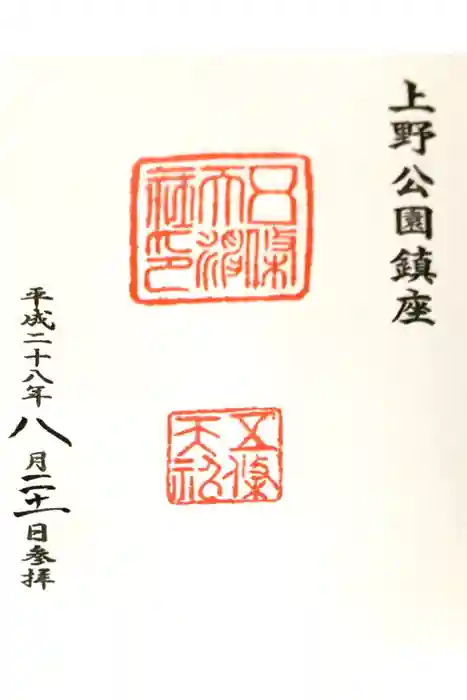 上野公園鎮座
五條
天神
社印
五條
天神
平成二十八年八月二十一日参拝